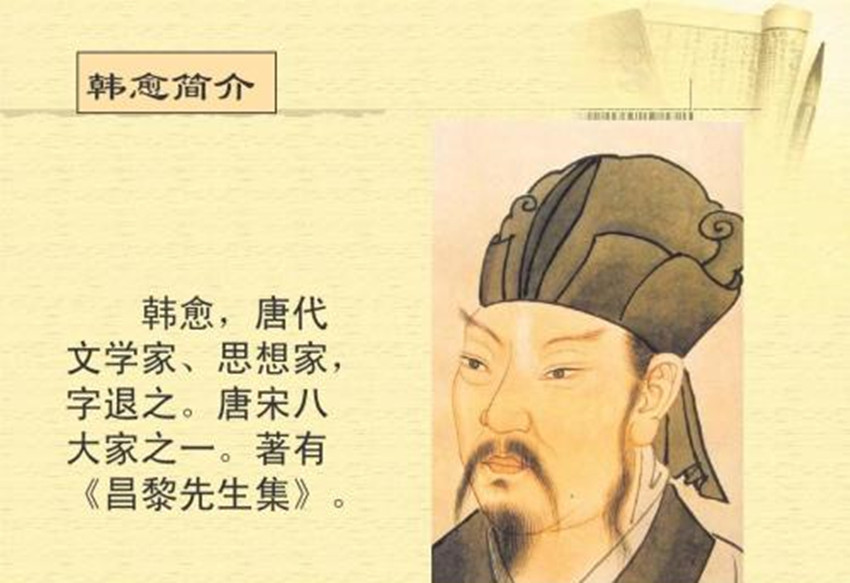 韩愈简介
韩愈，唐代
文学家、思想家，
字退之。唐宋八
大家之一。著有
《昌黎先生集》。